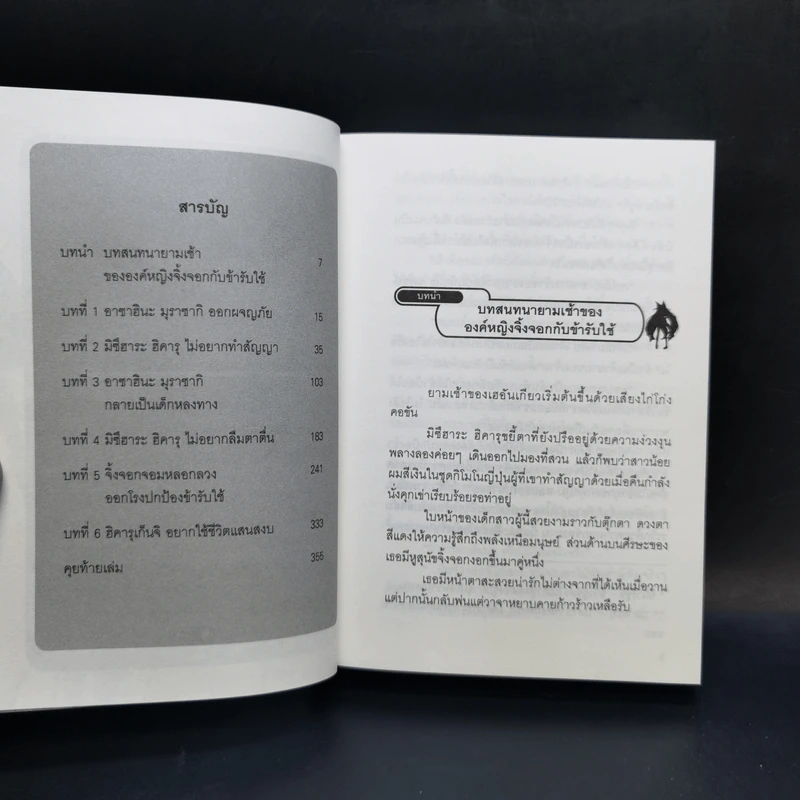 สารบัญ
บทนำ บทสนทนายามเช้า
ขององค์หญิงจิ้งจอกกับข้ารับใช้ 7
บทที่ 1 อาซาฮินะ มุราซากิ ออกผจญภัย 15
บทที่ 2 มิซึฮาระ ฮิคารุ ไม่อยากทำสัญญา 35
บทที่ 3 อาซาฮินะ มุราซากิ 103
กลายเป็นเด็กหลงทาง
บทที่ 4 มิซึฮาระ ฮิคารุ ไม่อยากลืมตาตื่น 183
บทที่ 5 จิ้งจอกจอมหลอกลวง 241
ออกโรงปกป้องข้ารับใช้
บทที่ 6 ฮิคารุเก็นจิ อยากใช้ชีวิตแสนสงบ 333
คุยท้ายเล่ม 355
บทนำ
บทสนทนายามเช้าของ
องค์หญิงจิ้งจอกกับข้ารับใช้
ยามเช้าของเฮอันเกียวเริ่มต้นขึ้นด้วยเสียงไก่โก่ง
คอขัน
มิซึฮาระ ฮิคารุขยี้ตาที่ยังปรืออยู่ด้วยความง่วงงุน
พลางลองค่อยๆ เดินออกไปมองที่สวน แล้วก็พบว่าสาวน้อย
ผมสีเงินในชุดกิโมโนญี่ปุ่นผู้ที่เขาทำสัญญาด้วยเมื่อคืนกำลัง
นั่งคุกเข่าเรียบร้อยรอท่าอยู่
ใบหน้าของเด็กสาวผู้นี้สวยงามราวกับตุ๊กตา ดวงตา
สีแดงให้ความรู้สึกถึงพลังเหนือมนุษย์ ส่วนด้านบนศีรษะของ
เธอมีหูสุนัขจิ้งจอกงอกขึ้นมาคู่หนึ่ง
เธอมีหน้าตาสะสวยน่ารักไม่ต่างจากที่ได้เห็นเมื่อวาน
แต่ปากนั้นกลับพ่นแต่วาจาหยาบคายก้าวร้าวเหลือรับ